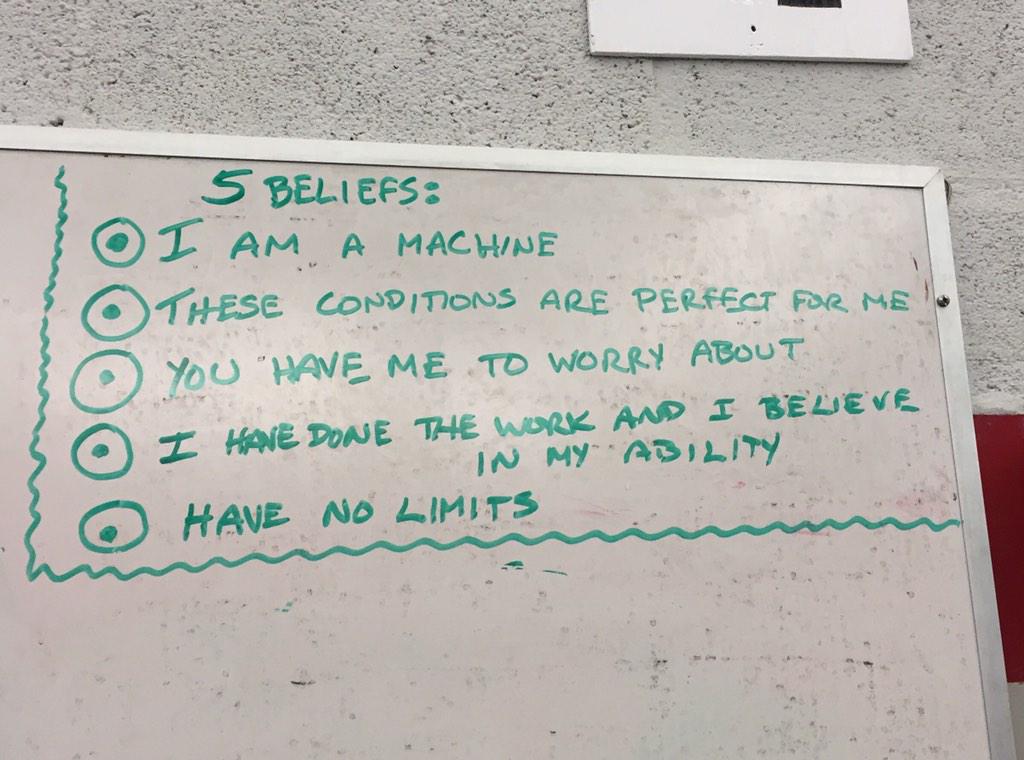 5 BELIEFS:
I AM A MACHINE
THESE CONDITIONS ARE PERFECT FOR ME
YOU HAVE ME TO WORRY ABOUT
I HAVE DONE THE WORK AND I BELIEVE
IN MY ABILITY
HAVE NO LIMITS